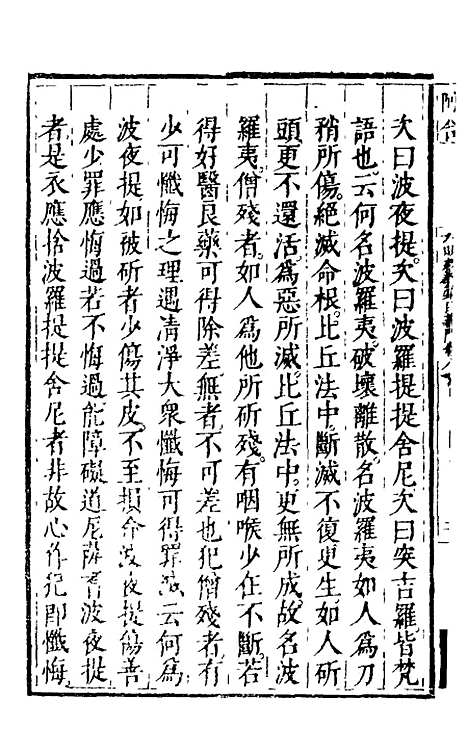 次曰波夜提。次曰波羅提提舍尼次曰突吉羅皆梵
語也。云何名波羅夷。破壞離散。名波羅夷如人爲刀
稍所傷。絕滅命根。比丘法中。斷滅不復更生如人斫
頭更不還活。爲惡所滅。比丘法中。更無所成。故名波
羅夷。僧殘者。如人爲他所斫殘。有咽喉少在不斷。若
得好醫良藥可得除差無者。不可差也犯僧殘者有
少可懺悔之理遇清淨大衆懺悔可得罪滅云何爲
波夜提如被斫者少傷其皮。不至損命波夜提傷善
處少罪應悔過若不悔過能障礙道尼薩耆波夜提
者是衣應捨波羅提提舍尼者非故心作犯即懺悔